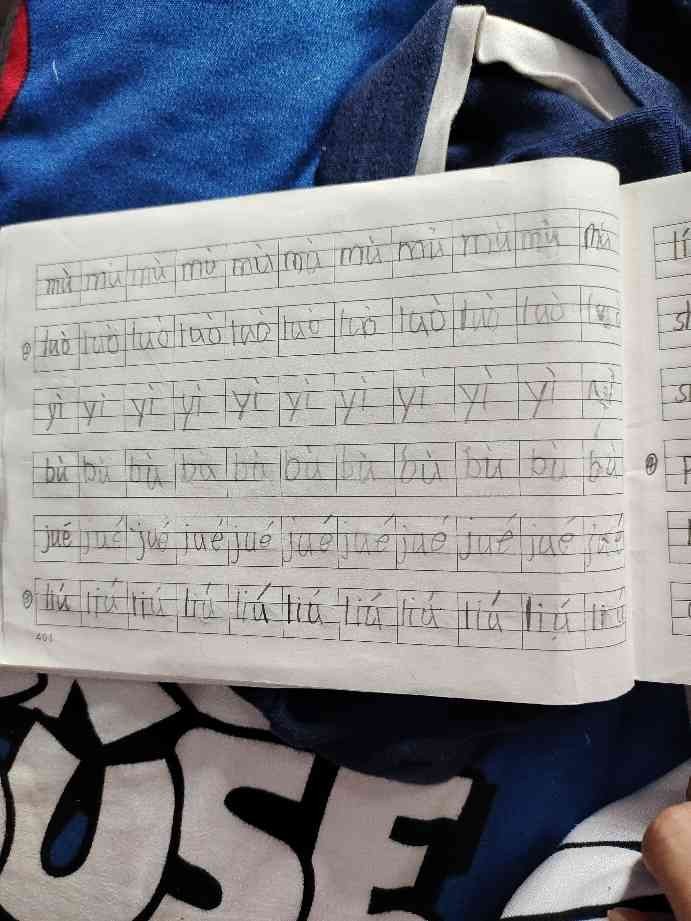 mù mù mù mù mù mù mù mù mù mù mù
② luò luò luò luò luò luò luò luò luò luò luò
yì yì yì yì yì yì yì yì yì yì
bù bù bù bù bù bù bù bù bù bù bù
jué jué jué jué jué jué jué jué jué jué jué
③ liú liú liú liú liú liú liú liú liú liú liú
401
lí
④
USE